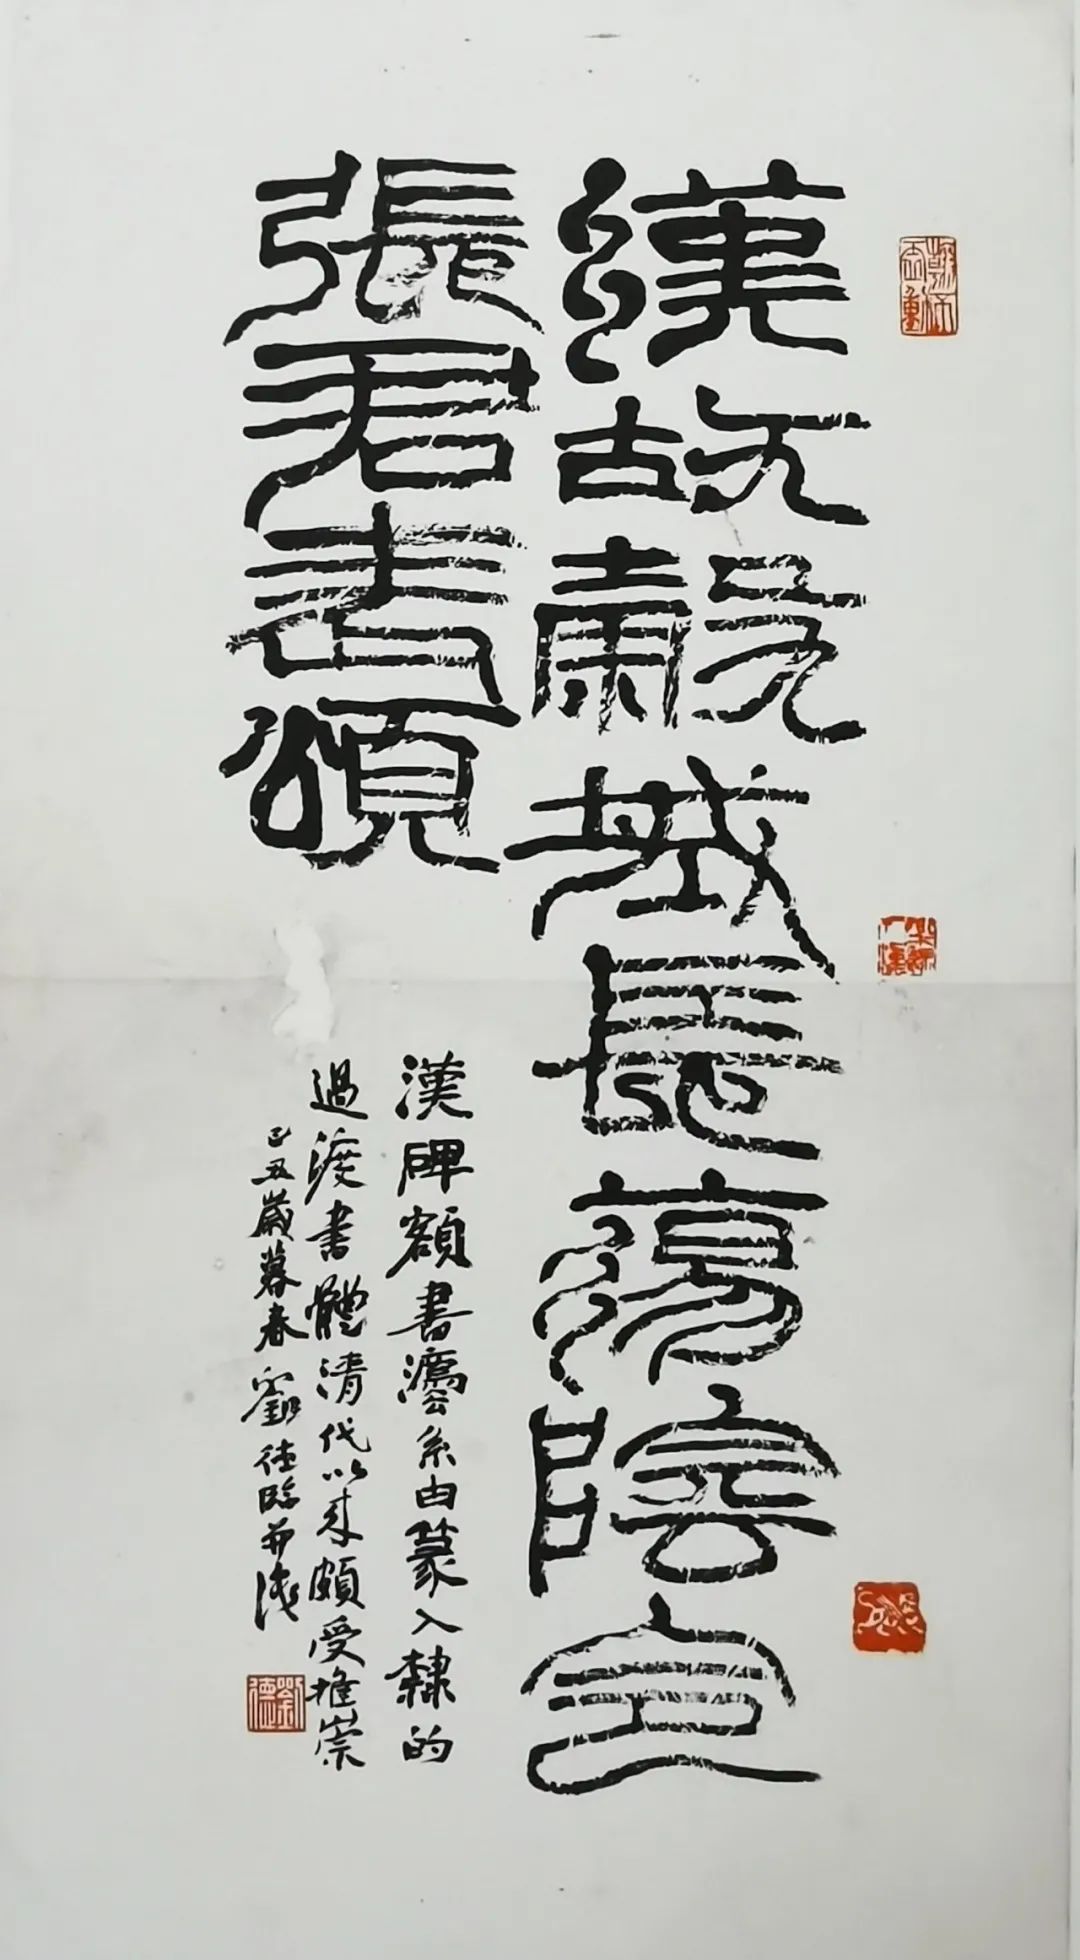 漢故穀城長蕩陰令
張君表頌
漢碑額書灋系由篆入隸的
過渡書體清代以來頗受推崇
己丑歲暮春劉德臨并識
劉德